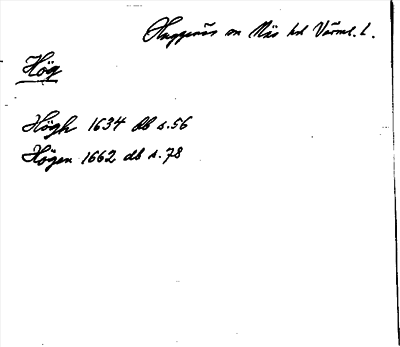 Huggenäs sn Näs hd Värml. l.
Hög
Högh 1634 db s.56
Högen 1662 db s.78